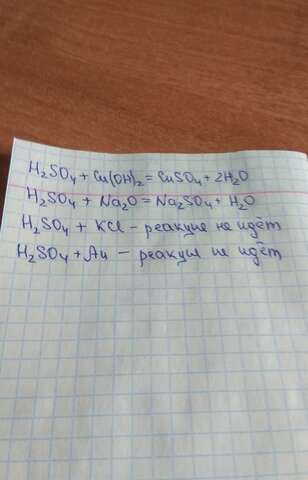 H₂SO₄ + Cu(OH)₂ = CuSO₄ + 2H₂O
H₂SO₄ + Na₂O = Na₂SO₄ + H₂O
H₂SO₄ + KCl – реакция не идёт
H₂SO₄ + Au – реакция не идёт